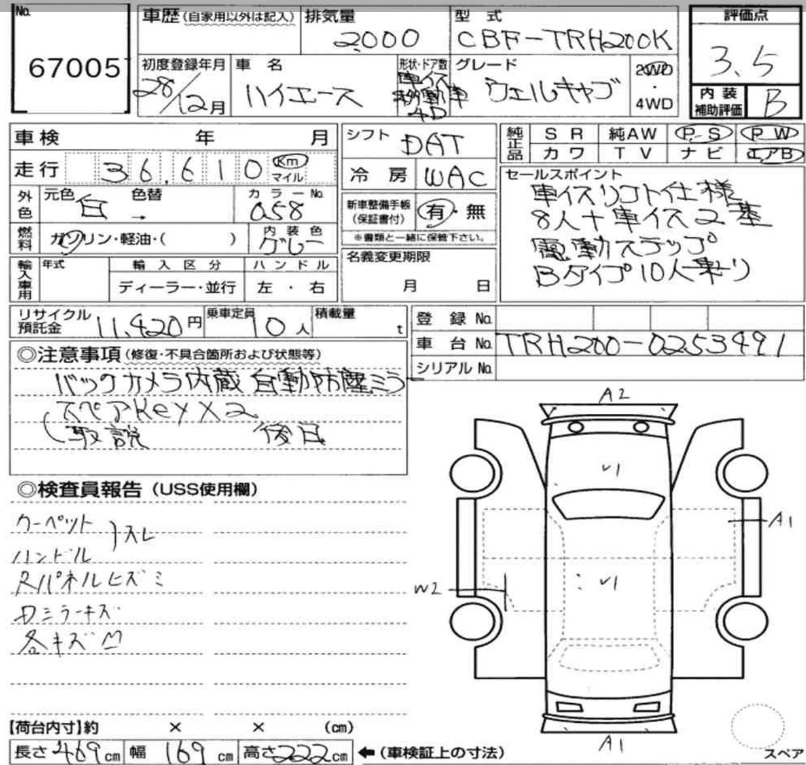 No. 67005
車歴 (自家用以外は記入) 排気量 2000
型式 CBF-TRH200K
評価点 3.5
初度登録年月 28/12月
車名 ハイエース
形状・ドア数 車イス移動車 4D
グレード ウェルキャブ
2WD・4WD
内装補助評価 B
車検 年 月
シフト DAT
純正品 SR 純AW P-S PW
カワ TV ナビ エアB
走行 36,610 Km マイル
冷房 WAC
外色 元色 白 色替 カラーNo. 058
新車整備手帳(保証書付) 有・無
※書類と一緒に保管下さい。
燃料 ガソリン・軽油・( ) 内装色 グレー
セールスポイント
車イスリフト仕様
8人+車イス2基
電動ステップ
Bタイプ10人乗り
名義変更期限 月 日
輸入車用 年式 輸入区分 ハンドル
ディーラー・並行 左・右
リサイクル預託金 11,420円 乗車定員 10人 積載量 t
登録No.
車台No. TRH200-0253491
シリアルNo.
◎注意事項 (修復・不具合箇所および状態等)
バックカメラ内蔵自動防塵ミラー
スペアKeyX2
取説 後日
◎検査員報告 (USS使用欄)
カーペット
ハンドル スレ
Rパネルヒズミ
Dミラーキズ
各キズ凹
A2
V1
A1
W2
V1
A1
スペア
【荷台内寸】約 × × (cm)
長さ469cm 幅169cm 高さ222cm ←(車検証上の寸法)